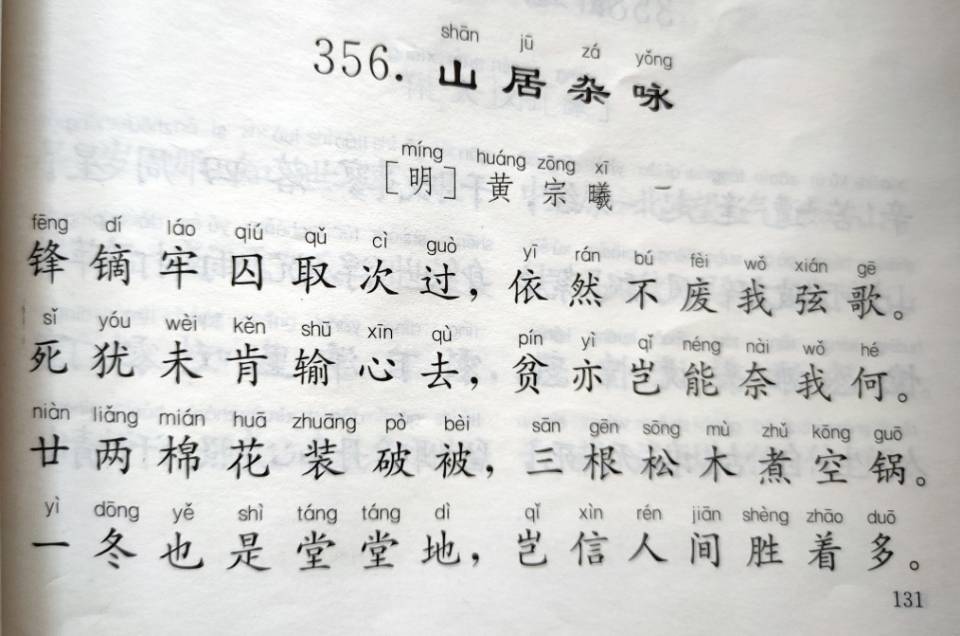 shān jū zá yǒng
356. 山居杂咏
míng huáng zōng xī
[明] 黄宗曦
fēng dí láo qiú qǔ cì guò yī rán bú fèi wǒ xián gē
锋镝牢囚取次过，依然不废我弦歌。
sǐ yóu wèi kěn shū xīn qù pín yì qǐ néng nài wǒ hé
死犹未肯输心去，贫亦岂能奈我何。
niàn liǎng mián huā zhuāng pò bèi sān gēn sōng mù zhǔ kōng guō
廿两棉花装破被，三根松木煮空锅。
yì dōng yě shì táng táng dì qǐ xìn rén jiān shèng zhāo duō
一冬也是堂堂地，岂信人间胜着多。
131